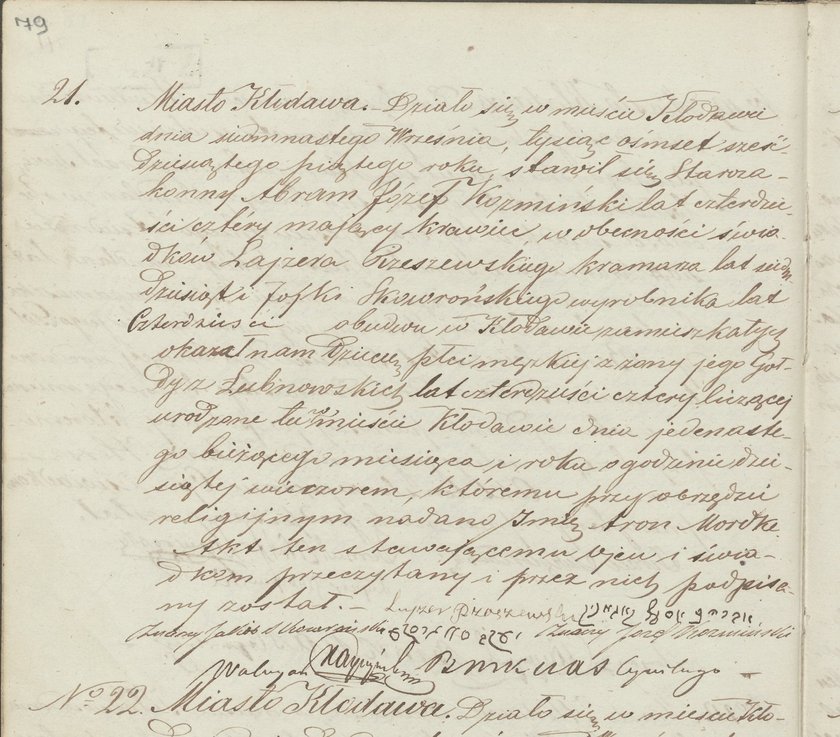 79
21. Miasto Kłodawa. Działo się w mieście Kłodawie
dnia siómnastego Września, tysiąc ośmset sześć-
dziesiątego piątego roku, stawił się Staroza-
konny Abram Józef Koźmiński lat czterdzie-
ści cztéry mający krawiec w obecności świa-
dków Lajzera Przeszewskiego kramarza lat siedm
dziesiąt i Joska Skowrońskiego wyrobnika lat
czterdzieści obudwu w Kłodawie zamieszkałych
okazał nam Dziecię płci męzkiej z żony jego Goł-
dy z Lubnowskich lat czterdzieści cztery liczącej
urodzone tu w mieście Kłodawie dnia jedenaste-
go bieżącego miesiąca i roku o godzinie dzie-
siątej wieczorem, któremu przy obrzędzie
religijnym nadano Imię Aron Mordke
Akt ten stawającemu ojcu i świa-
dkom przeczytany i przez nich podpisa-
ny został. - Lajzer
Znany Jakób Skowroński Znany Józef Koźmiński
Burmistrz Cywilnego
No 22. Miasto Kłodawa. Działo się w mieście Kło-